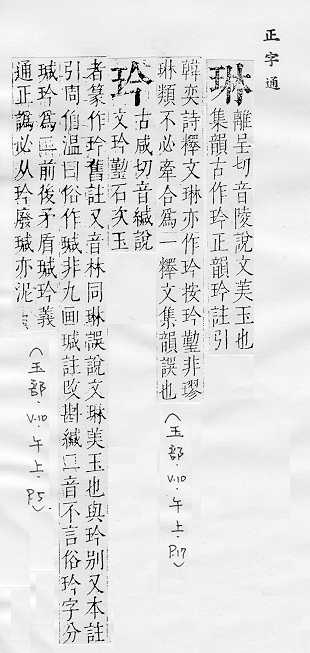 正字通
琳
離呈切音陵說文美玉也
集韻古作玪正韻玪註引
韓奕詩釋文琳亦作玪按玪䃴非璆
琳類不必牽合爲一釋文集韻誤也
(玉部.V.10.午上.P.17)
玪
古咸切音緘說
文玪䃴石次玉
者篆作玪舊註又音林同琳誤說文琳美玉也與玪别又本註
引周伯溫曰俗作瑊非九画瑊註改斟緘二音不言俗玪字分
瑊玪爲二前後矛盾瑊玪義
通正譌必从玪廢瑊亦泥
(玉部.V.10.午上.P.5)